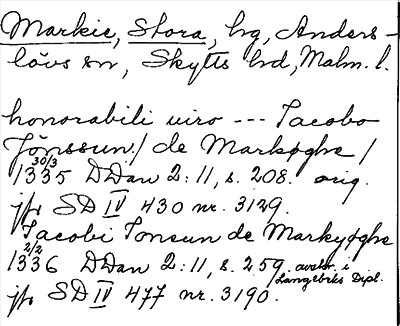 Markie, Stora, by, Anders-
lövs sn, Skytts hd, Malm. l.
honorabili uiro --- Jacobo
Jönssun / de Markøghe /
30/3 1335 DDan 2:11, s. 208. orig.
jfr SD IV 430 nr. 3129.
Jacobi Jonsun de Markyøghe
2/2 1336 DDan 2:11, s. 259 avskr. i Langebeks Dipl.
jfr SD IV 477 nr. 3190.